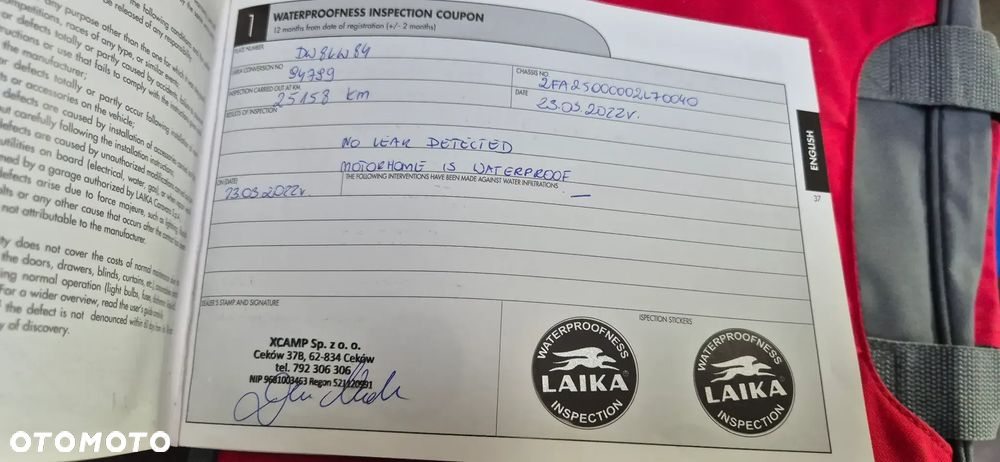 the following conditions
any purpose other than the one for which
be released of any responsibility.
competitions, races of any type, or similar events;
defects totally or partly caused by accidents
tructions or use that fails to comply with the instructions
the manufacturer;
or defects totally or partly occur following
s or accessories on the vehicle;
defects are caused by installation of accessories
ut carefully following the installation instructions;
efects are caused by unauthorized modifications
utilities on board (electrical, water, gas,
med by a garage authorized by LAIKA Caravans S.p.A.
efects arise due to force majeure, such as lightning,
lts or any other cause that occurs after the
not attributable to the manufacturer.
ty does not cover the costs of normal maintenance
the doors, drawers, blinds, curtains, etc.),
ing normal operation (light bulbs, fuses,
For a wider overview, read the user's guide
f the defect is not denounced within 60 days
y of discovery.
1
WATERPROOFNESS INSPECTION COUPON
12 months from date of registration (+/- 2 months)
PLATE NUMBER
DW8LW84
LAIKA CONVERSION NO
94799
CHASSIS NO
ZFA25000002L70040
INSPECTION CARRIED OUT AT KM
25158 km
DATE
23.03.2022r.
RESULTS OF INSPECTION
NO LEAK DETECTED
MOTORHOME IS WATERPROOF
ON (DATE)
THE FOLLOWING INTERVENTIONS HAVE BEEN MADE AGAINST WATER INFILTRATIONS
23.03.2022r.
—
DEALER'S STAMP AND SIGNATURE
ISPECTION STICKERS
XCAMP Sp. z o. o.
Ceków 37B, 62-834 Ceków
tel. 792 306 306
NIP 9681003463 Regon 521220991
WATERPROOFNESS
LAIKA
INSPECTION
WATERPROOFNESS
LAIKA
INSPECTION
ENGLISH
37
OTOMOTO